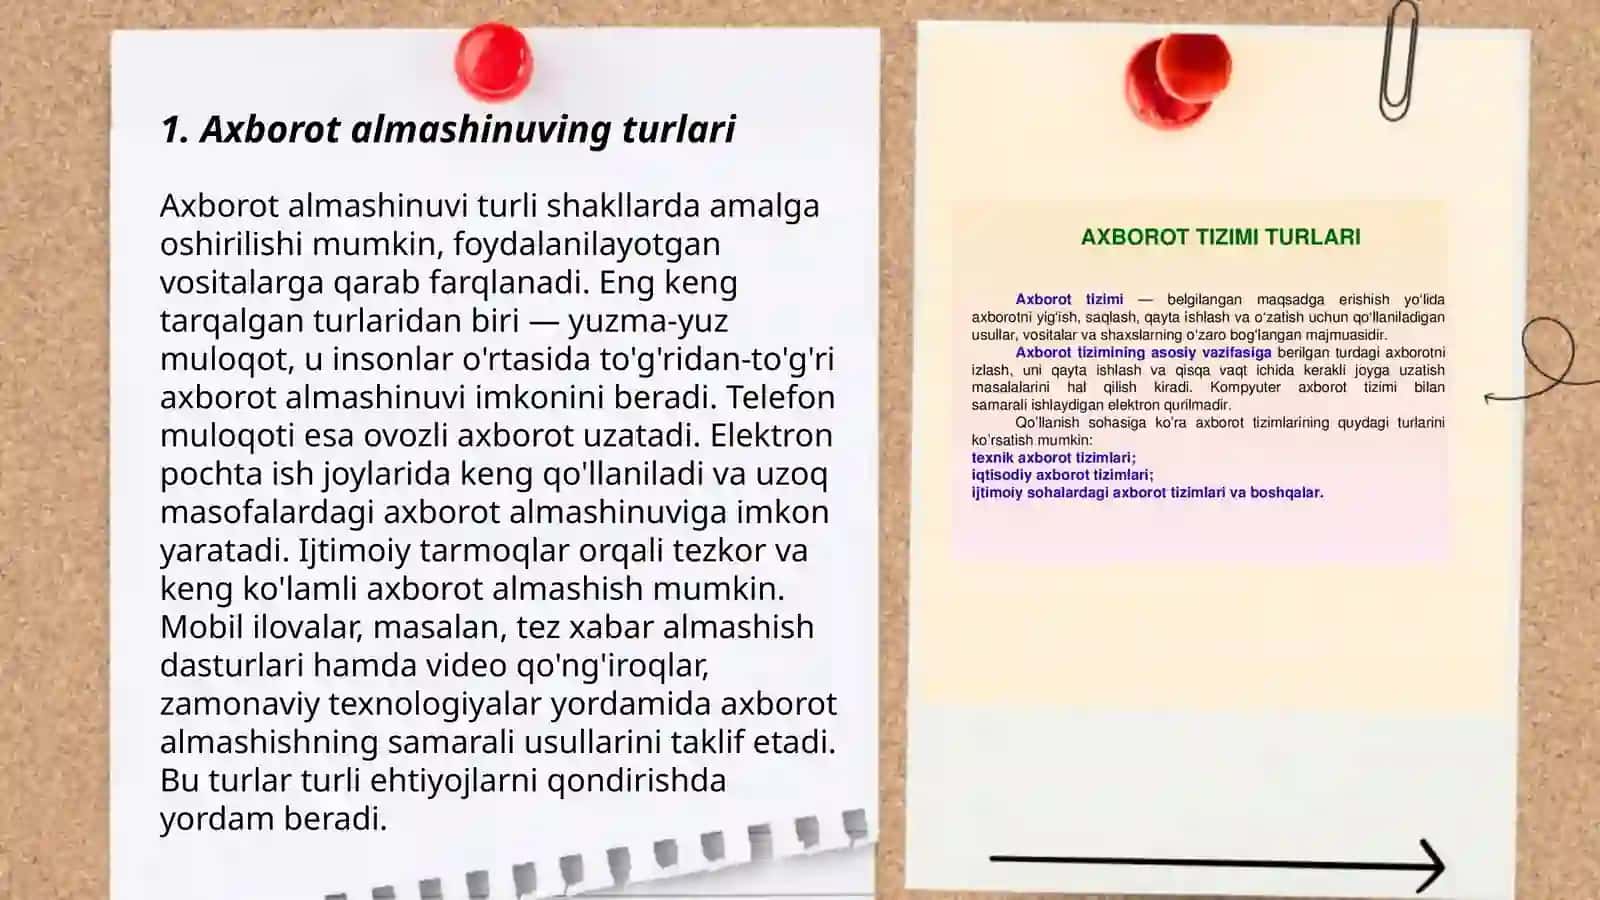 1. Axborot almashinuving turlari
Axborot almashinuvi turli shakllarda amalga
oshirilishi mumkin, foydalanilayotgan
vositalarga qarab farqlanadi. Eng keng
tarqalgan turlaridan biri — yuzma-yuz
muloqot, u insonlar o'rtasida to'g'ridan-to'g'ri
axborot almashinuvi imkonini beradi. Telefon
muloqoti esa ovozli axborot uzatadi. Elektron
pochta ish joylarida keng qo'llaniladi va uzoq
masofalardagi axborot almashinuviga imkon
yaratadi. Ijtimoiy tarmoqlar orqali tezkor va
keng ko'lamli axborot almashish mumkin.
Mobil ilovalar, masalan, tez xabar almashish
dasturlari hamda video qo'ng'iroqlar,
zamonaviy texnologiyalar yordamida axborot
almashishning samarali usullarini taklif etadi.
Bu turlar turli ehtiyojlarni qondirishda
yordam beradi.
AXBOROT TIZIMI TURLARI
Axborot tizimi — belgilangan maqsadga erishish yo'lida
axborotni yig'ish, saqlash, qayta ishlash va o'zatish uchun qo'llaniladigan
usullar, vositalar va shaxslarning o'zaro bog'langan majmuasidir.
Axborot tizimining asosiy vazifasiga berilgan turdagi axborotni
izlash, uni qayta ishlash va qisqa vaqt ichida kerakli joyga uzatish
masalalarini hal qilish kiradi. Kompyuter axborot tizimi bilan
samarali ishlaydigan elektron qurilmadir.
Qo'llanish sohasiga ko'ra axborot tizimlarining quydagi turlarini
ko'rsatish mumkin:
texnik axborot tizimlari;
iqtisodiy axborot tizimlari;
ijtimoiy sohalardagi axborot tizimlari va boshqalar.